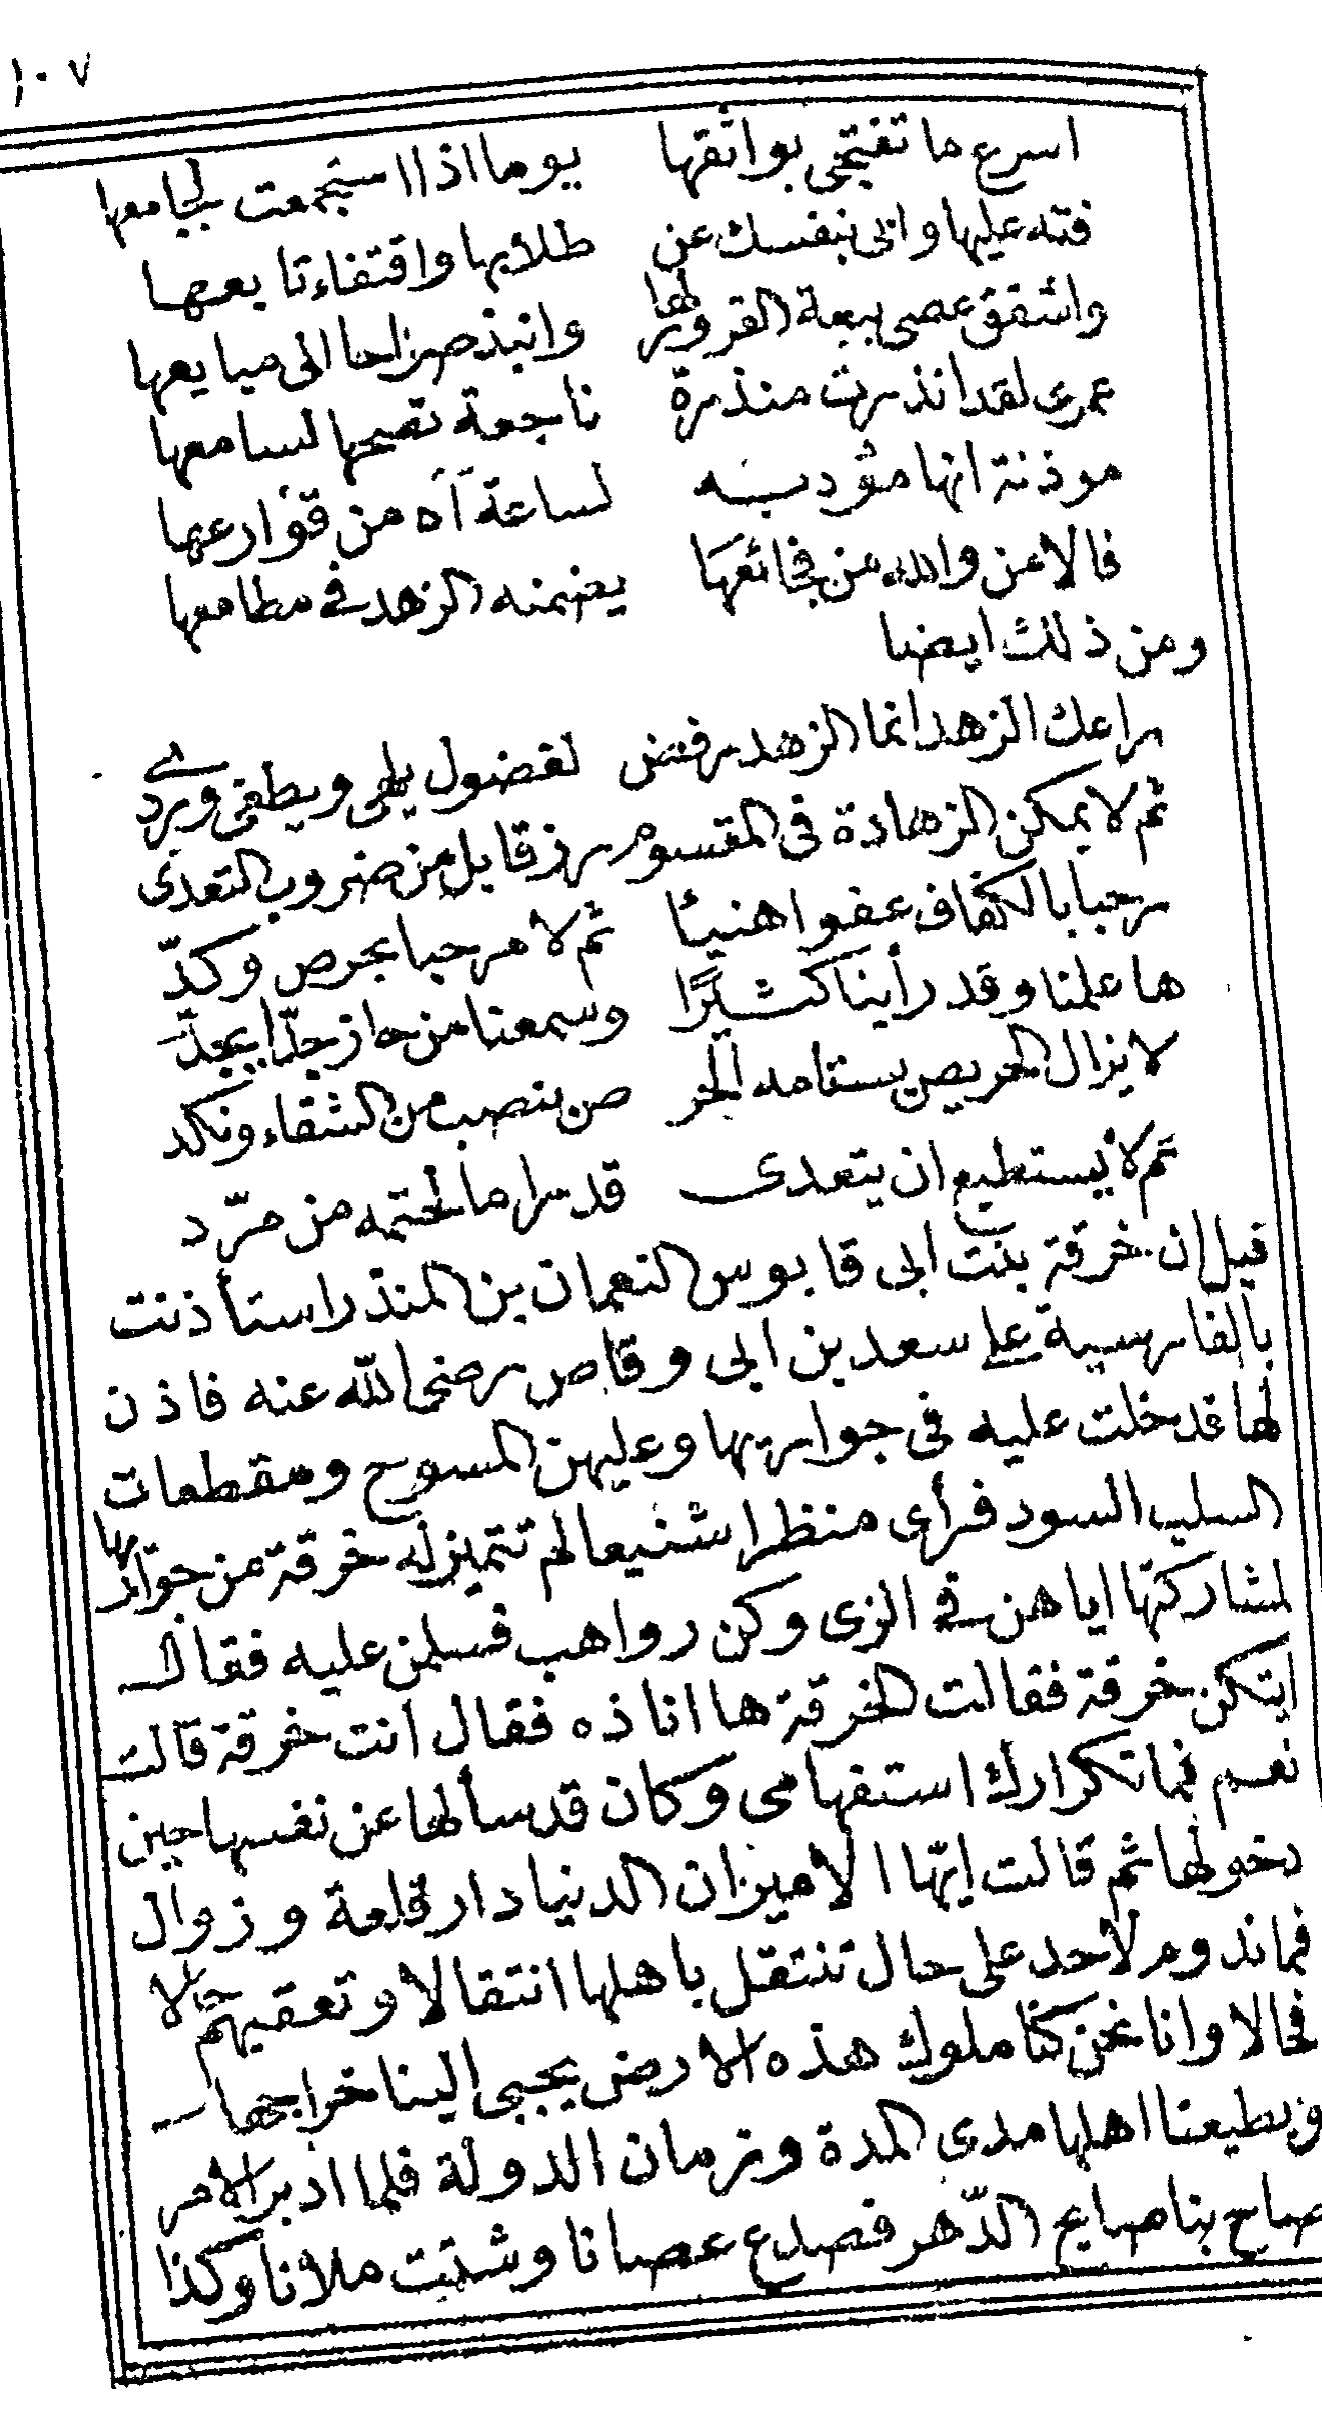 ١٠٧
اسرع ما تفتجى بوائقها يوما اذا استجمعت لجامعها
فته عليها وانى بنفسك عن طلابها واقتفاء تابعها
واشقق عصى بيعة الغرور لها وانبذ صراحا الى مبايعها
عمرى لقد انذرت منذرة ناجعة نصيحها لسامعها
موذنة انها مؤديـه لساعة آه من قوارعها
فالامن والله من فجائعها يضمنه الزهد فى مطامعها
ومن ذلك ايضا
راعك الزهد انما الزهد رفض لفضول يلهى ويطغى ويردى
ثم لا يمكن الزهادة فى المقسوم رزقا بل من ضروب التعدى
مرحبا بالكفاف عفوا هنيئا ثم لا مرحبا بحرص وكدّ
ما علمنا وقد رأينا كثيرًا وسمعنا من حاز جدّا بجدّ
لا يزال الحريص يستامه الحر ص بنصب من الشقاء ونكد
ثم لا يستطيع ان يتعدى قدرا ما لحتمه من مرّد
قيل ان خرقة بنت ابى قابوس النعمان بن المنذر استأذنت
بالقادسية على سعد بن ابى وقاص رضى الله عنه فاذن
لها فدخلت عليه فى جواريها وعليهن المسوح ومقطعات
السلب السود فرأى منظرا شنيعا لم تتميز له خرقة من جواريها
لمشاركتها اياهن فى الزى وكن رواهب فسلمن عليه فقال
ايتكن خرقة فقالت الخرقة ها انا ذه فقال انت خرقة قالت
نعم فما تكرارك استفهامى وكان قد سألها عن نفسها حين
دخولها ثم قالت ايّها الامير ان الدنيا دار قلعة وزوال
فما تدوم لاحد على حال تنتقل باهلها انتقالا وتعقبهم حالا
فحالا وانا نحن كنا ملوك هذه الارض يجبى الينا خراجها
ويطيعنا اهلها مدى المدة وزمان الدولة فلما ادبر الامر
صاح بنا صايح الدّهر فصدع عصانا وشتت ملانا وكذا